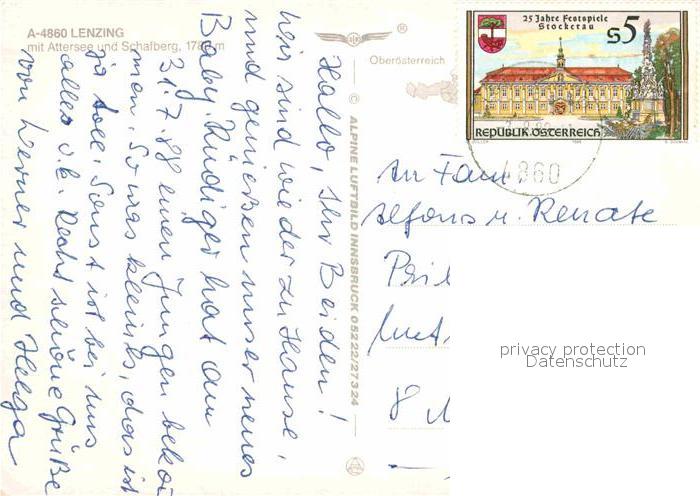 A-4860 LENZING
mit Attersee und Schafberg, 1783 m
Oberösterreich
© ALPINE LUFTBILD INNSBRUCK 05222/27324
Hallo, Ihr Beiden!
hier sind wieder zu Hause,
und genießen unser neues
Baby. Rüdiger hat am
31.7.88 einen Jungen bekom
men. So was kleines, das ist
ja toll. Sonst ist bei uns
alles o.k. Recht schöne Grüße
von Werner und Helga
25 Jahre Festspiele
Stockerau
S5
REPUBLIK ÖSTERREICH
4860
An Fam.
Alfons u. Renate
8
privacy protection
Datenschutz